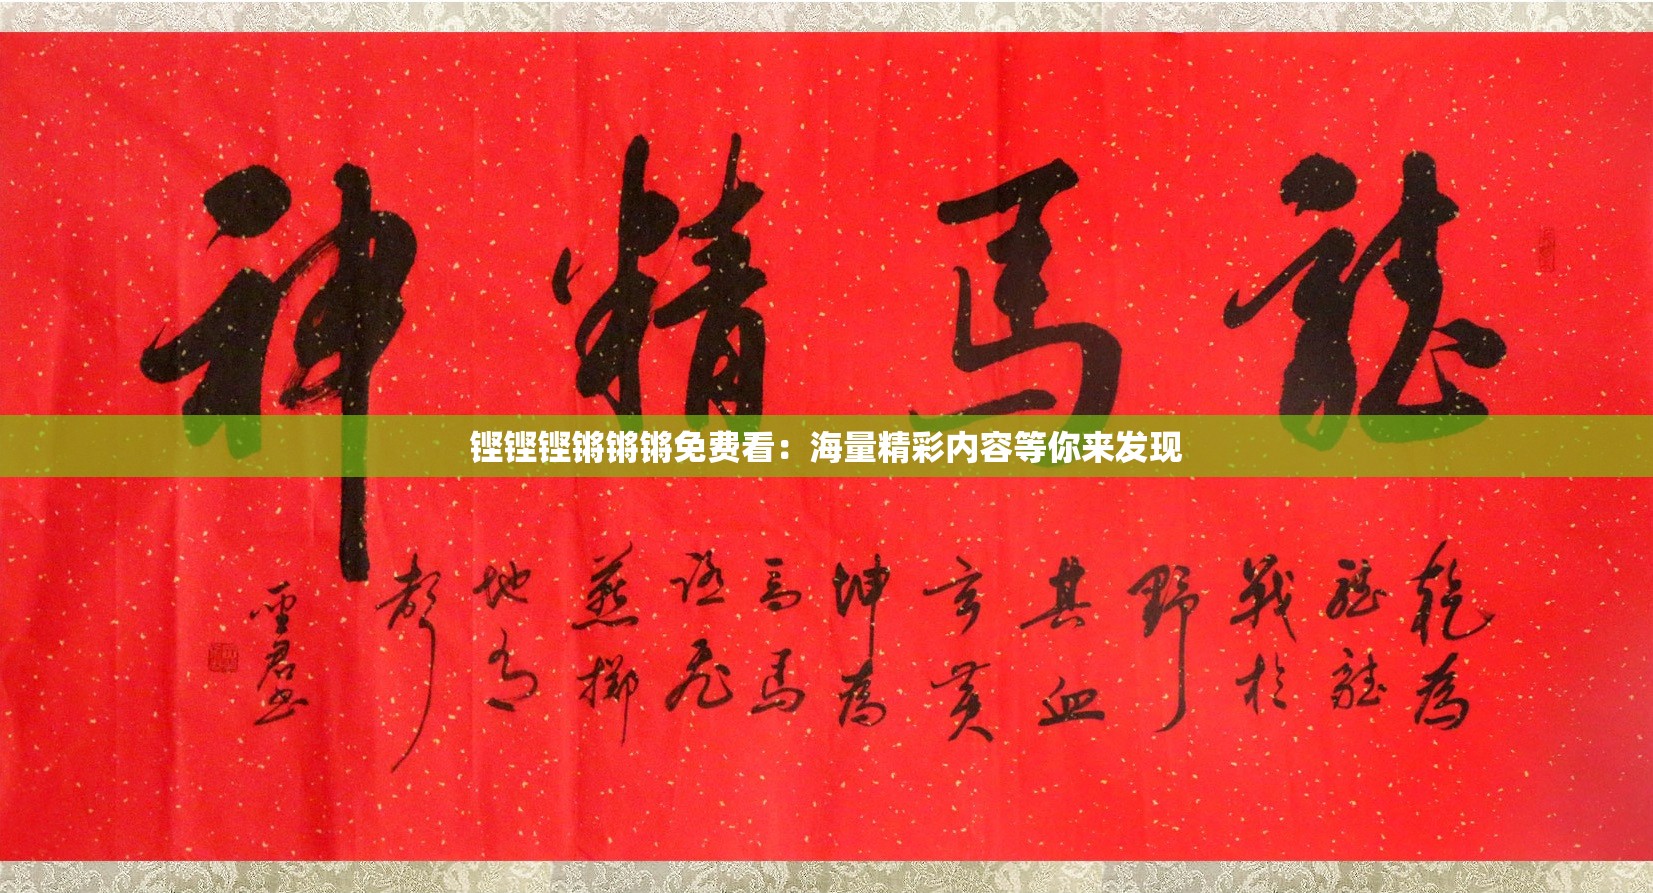 龍馬精神
铿铿铿锵锵锵免费看：海量精彩内容等你来发现
乾為
龍龍
戰於
野
其血
玄黃
坤為
馬馬
踏飛
燕擲
地有
聲
君书